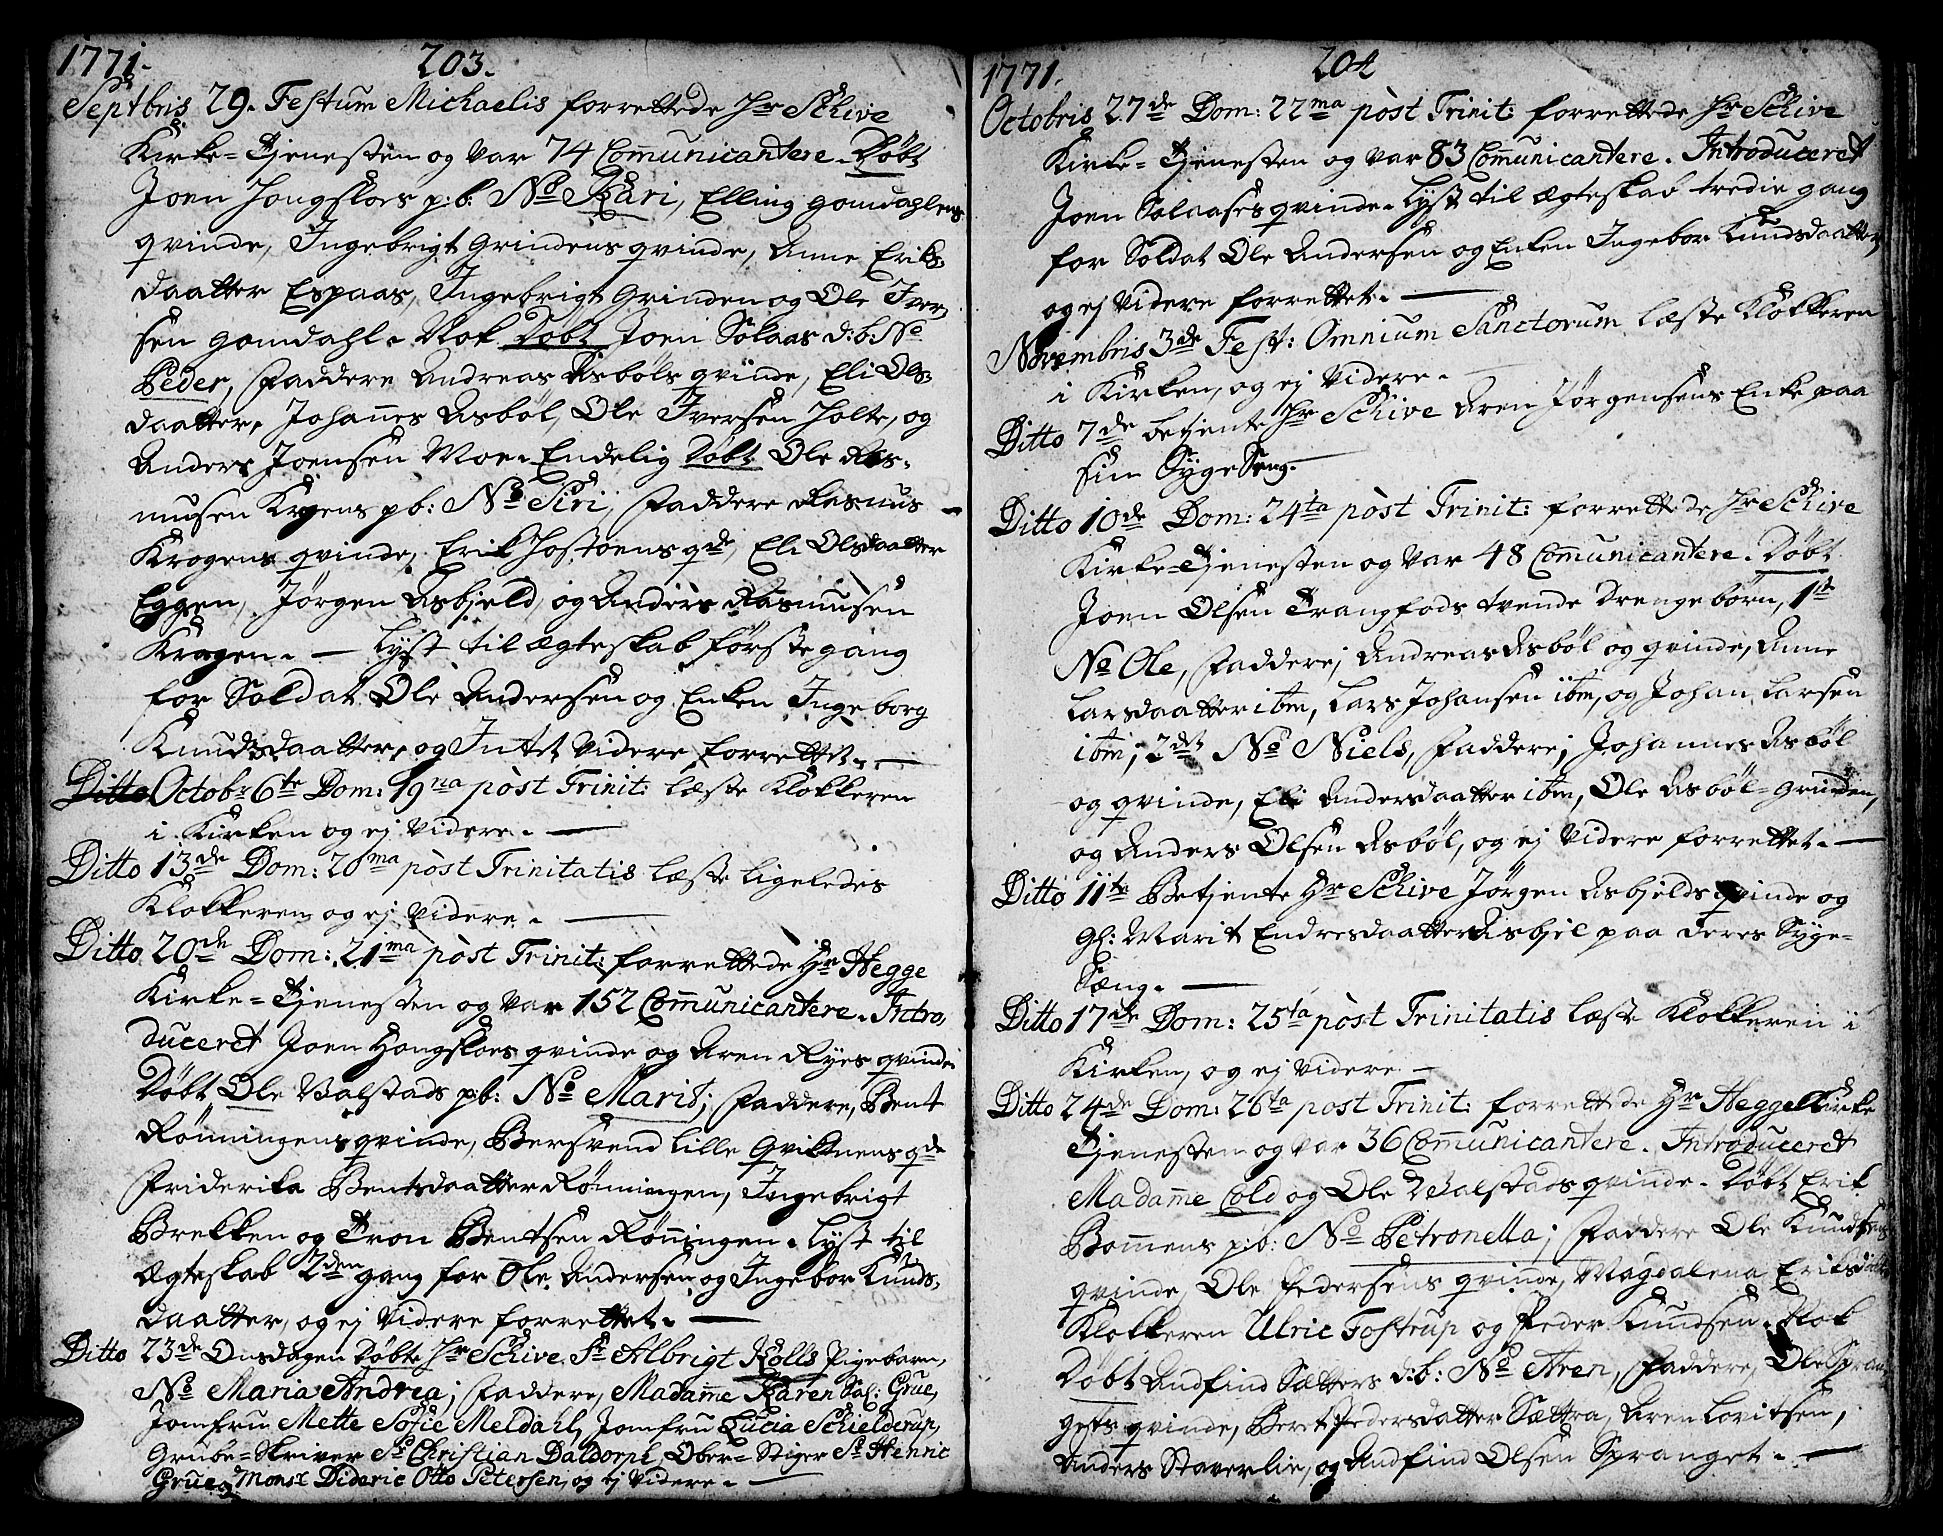 1771. 203.
Septbris 29. Festum Michaelis forrettede Hr Schive
Kirke=Tjenesten og var 74 Communicantere. Döbt
Joen Hongsloes p:b: No Kari, Elling gomdahlens
qvinde, Ingebrigt Grindens qvinde, Anne Eriks-
daatter Espaas, Ingebrigt Grinden og Ole Iver,
sen gomdahl. Nok Döbt Joen Solaas d:b: No
Peder, Faddere Andreas Asböls qvinde, Eli Ols-
daatter, Johannes Asböl, Ole Iversen Holte, og
Anders Joensen Moe. Endelig Döbt Ole Ras-
musen Krogens pb: No Siri, Faddere Rasmus
Krogens qvinde, Erik Hostoens qde, Eli Olsdaatter
Eggen, Jörgen Asbjeld, og Anders Rasmusen
Krogen. — Lyst til ægteskab förste gang
for Soldat Ole Andersen og Enken Ingeborg
Knudsdaatter, og Intet videre forrettet. —
Ditto Octobr 6te Dom: 19na pòst Trinit: læste Klokkeren
i Kirken og ej videre. —
Ditto 13de Dom: 20ma pòst Trinitatis læste ligeledes
Klokkeren og ej videre. —
Ditto 20de Dom: 21ma pòst Trinit: forrettede Hr Hegge
Kirke=Tjenesten og var 152 Communicantere. Intro,
duceret Joen Hongsloes qvinde og Aren Ryes qvinde
Döbt Ole Valstads pb: No Marit; Faddere, Bent
Rönningens qvinde, Bersvend lille Qviknens qde
Friderika Bentsdaatter Rönningen, Ingebrigt
Brekken og Tron Bentsen Rönningen. Lyst til
Ægteskab 2den gang for Ole Andersen og Ingebor Knuds-
daatter, og ej videre forrettet. —
Ditto 23de Onsdagen Döbte Hr Schive Sr Albrigt Kolls Pigebarn,
No Maria Andrea; Faddere, Madame Karen Sal: Grue,
Jomfru Mette Sofie Meldahl, Jomfru Lucia Schielderup,
Grube=Skriver Sr Christian Daldorph, Ober=Stiger Sr Henric
Grue og Monsr Dideric Otto Petersen, og ej videre. —
1771. 204
Octobris 27de Dom: 22ma pòst Trinit: forrettede Hr Schive
Kirke=Tjenesten og var 83 Communicantere. Introduceret
Joen Solaases qvinde. Lyst til ægteskab tredie gang
for Soldat Ole Andersen og Enken Ingebor Knudsdaatter,
og ej videre forrettet. —
Novembris 3de Fest: Omnium Sanctorum læste Klokkeren
i Kirken, og ej videre.
Ditto 7de betjente Hr Schive Aren Jörgensens Enke paa
sin SygeSeng. —
Ditto 10de Dom: 24ta pòst Trinit: forrettede Hr Schive
Kirke=Tjenesten og var 48 Communicantere. Döbt
Joen Olsen Trangfods tvende Drengebörn, 1te
No Ole, Faddere; Andreas Asböl og qvinde, Anne
Larsdaatter ibm, Lars Johansen ibm, og Johan Larsen
ibm; 2det No Niels, Faddere; Johannes Asböl
og qvinde, Eli Andersdaatter ibm, Ole Asböl=grinden,
og Anders Olsen Asböl, og ej videre forrettet. —
Ditto 11te Betjente Hr Schive Jörgen Asbjelds qvinde og
gl: Marit Endresdaatter Asbjel paa deres Syge=
Sæng. —
Ditto 17de Dom: 25ta pòst Trinitatis læste Klokkeren i
Kirken, og ej videre —
Ditto 24de Dom: 26ta post Trinit: forrettede Hr Hegge Kirke
Tjenesten og var 36 Communicantere. Introduceret
Madame Cold og Ole Walstads qvinde. Döbt Erik
Bommens p:b: No Petronella; Faddere Ole Knudsens
qvinde, Ole Pedersens qvinde, Magdalena Eriksdatter
Klokkeren Ulric Fostrup og Peder Knudsen. Nok
Döbt Andfind Sætters d:b: No Aren, Faddere, Ole Spran
gets qvinde, Beret Pedersdatter Sættra, Aren Lovitsen,
Anders Staverlie, og Andfind Olsen Spranget. —